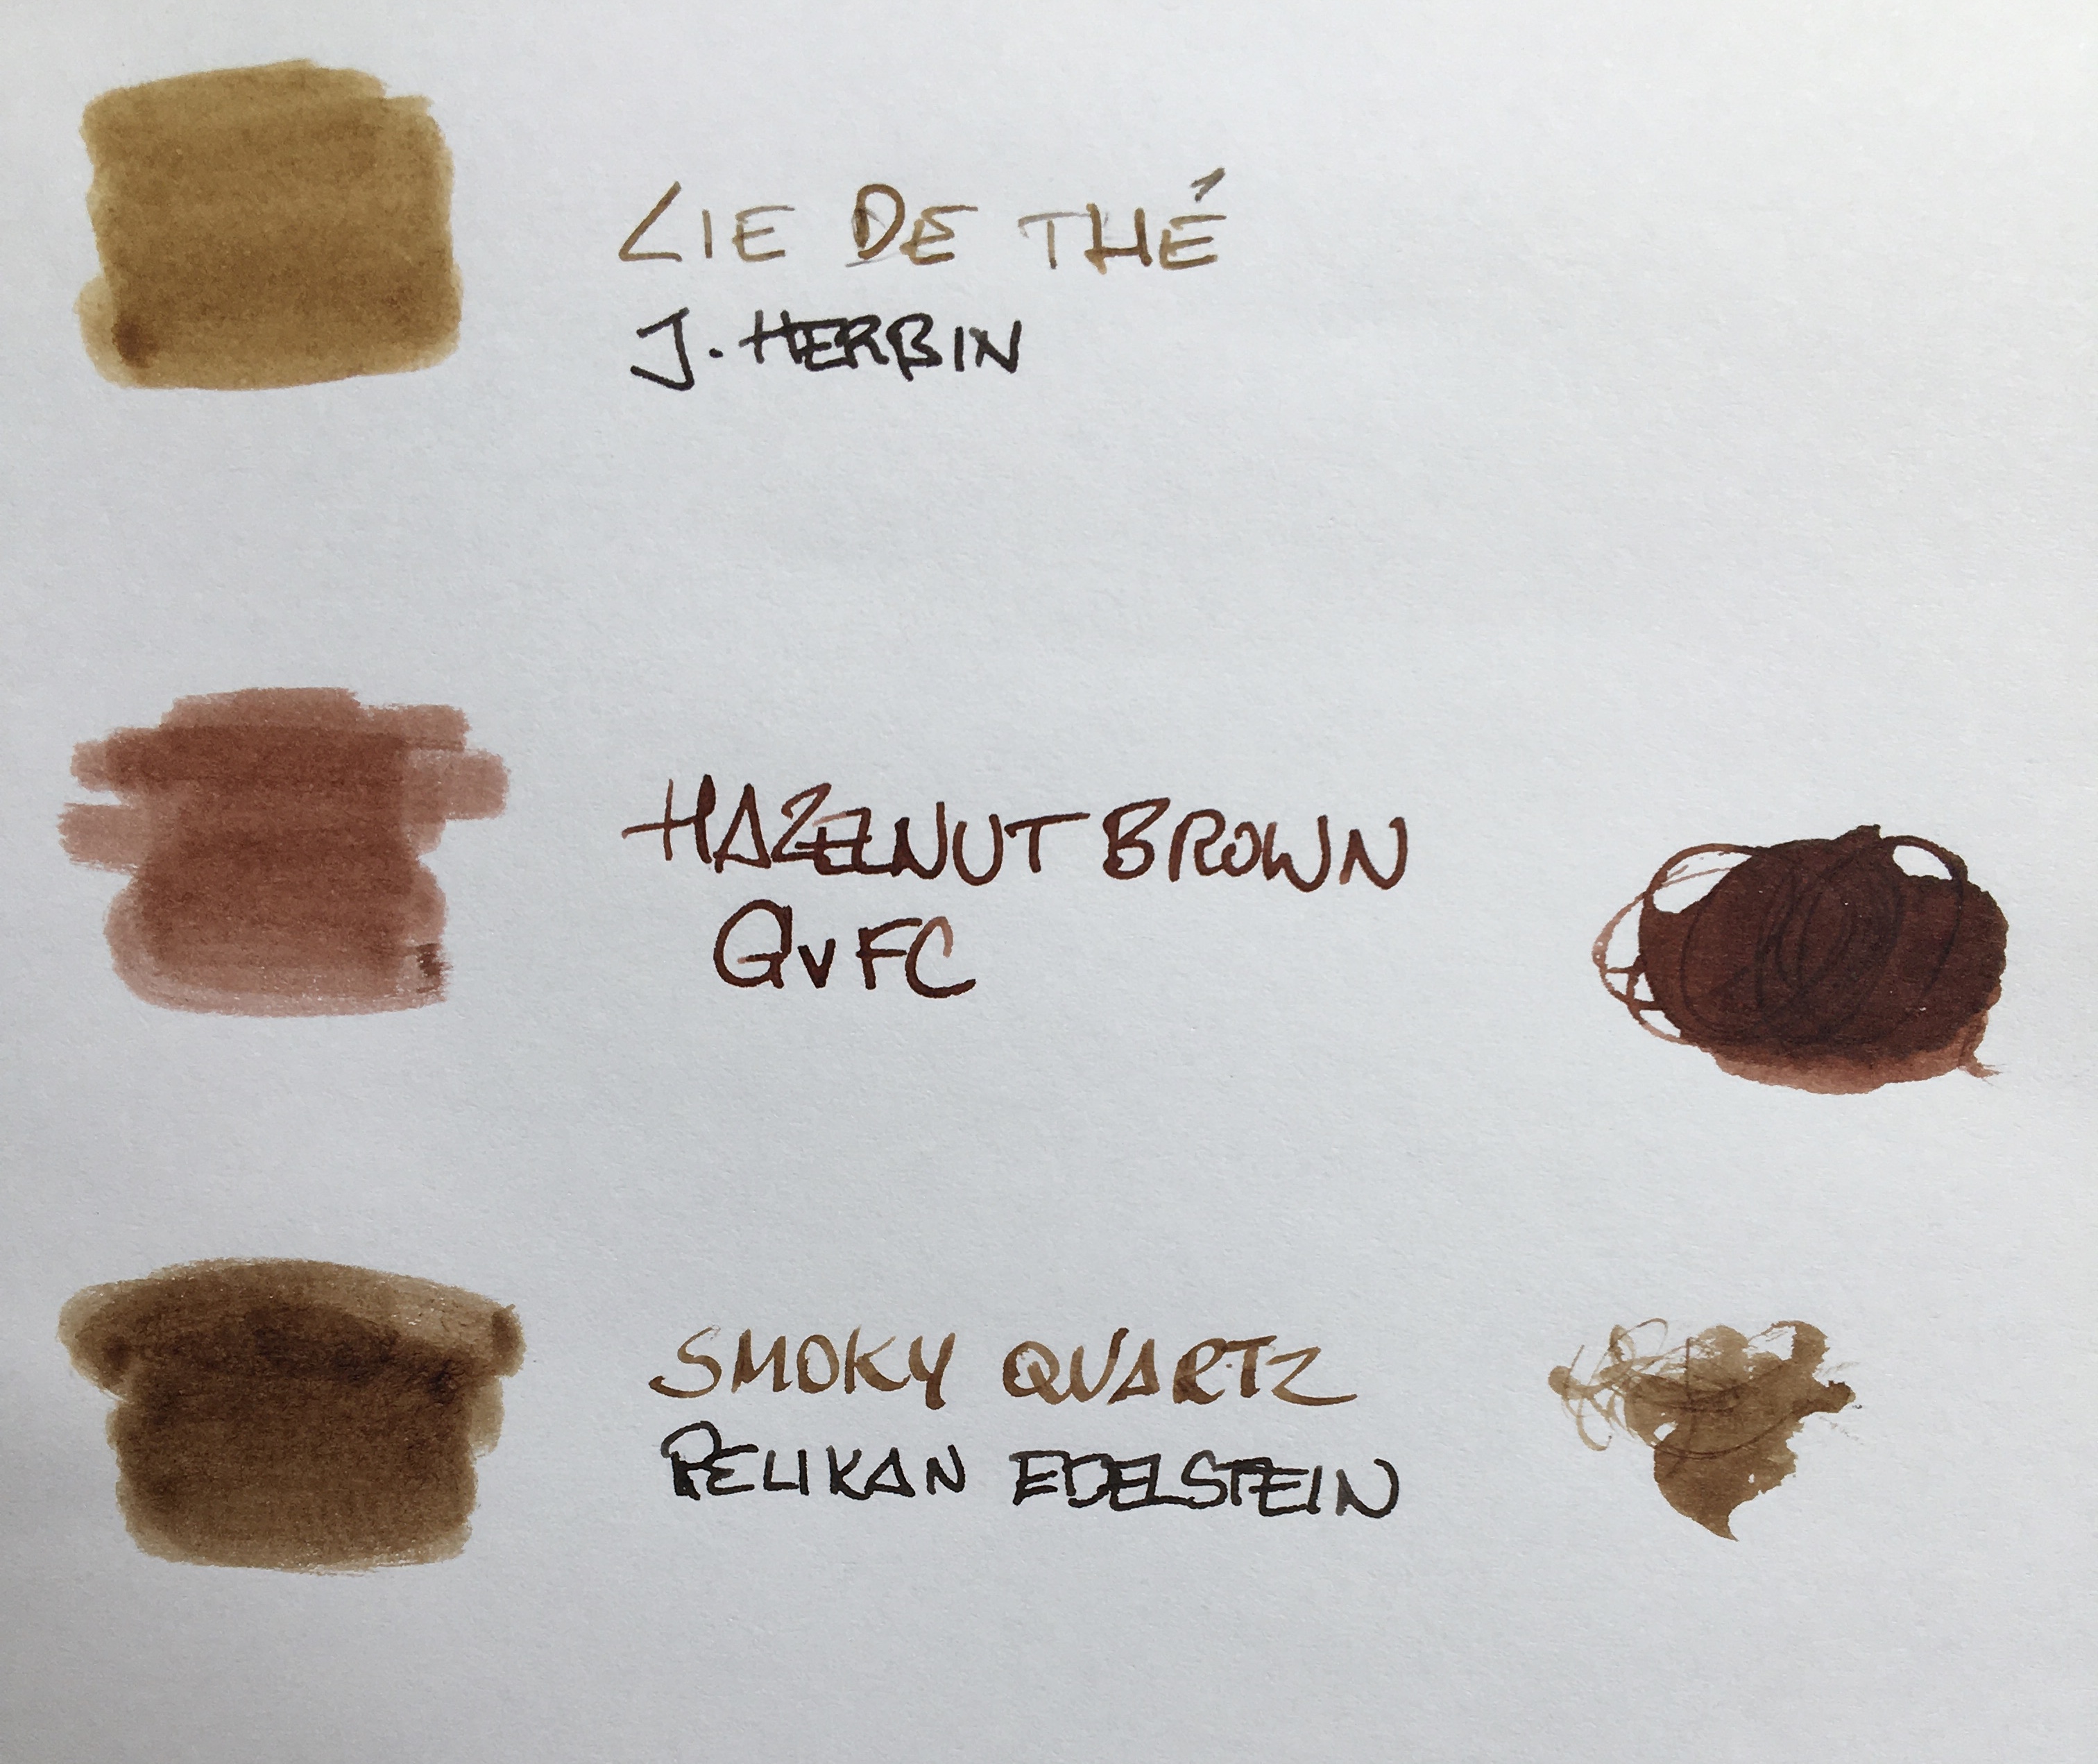 LIE DE THÉ
J. HERBIN
HAZELNUT BROWN
GvFC
SMOKY QUARTZ
PELIKAN EDELSTEIN